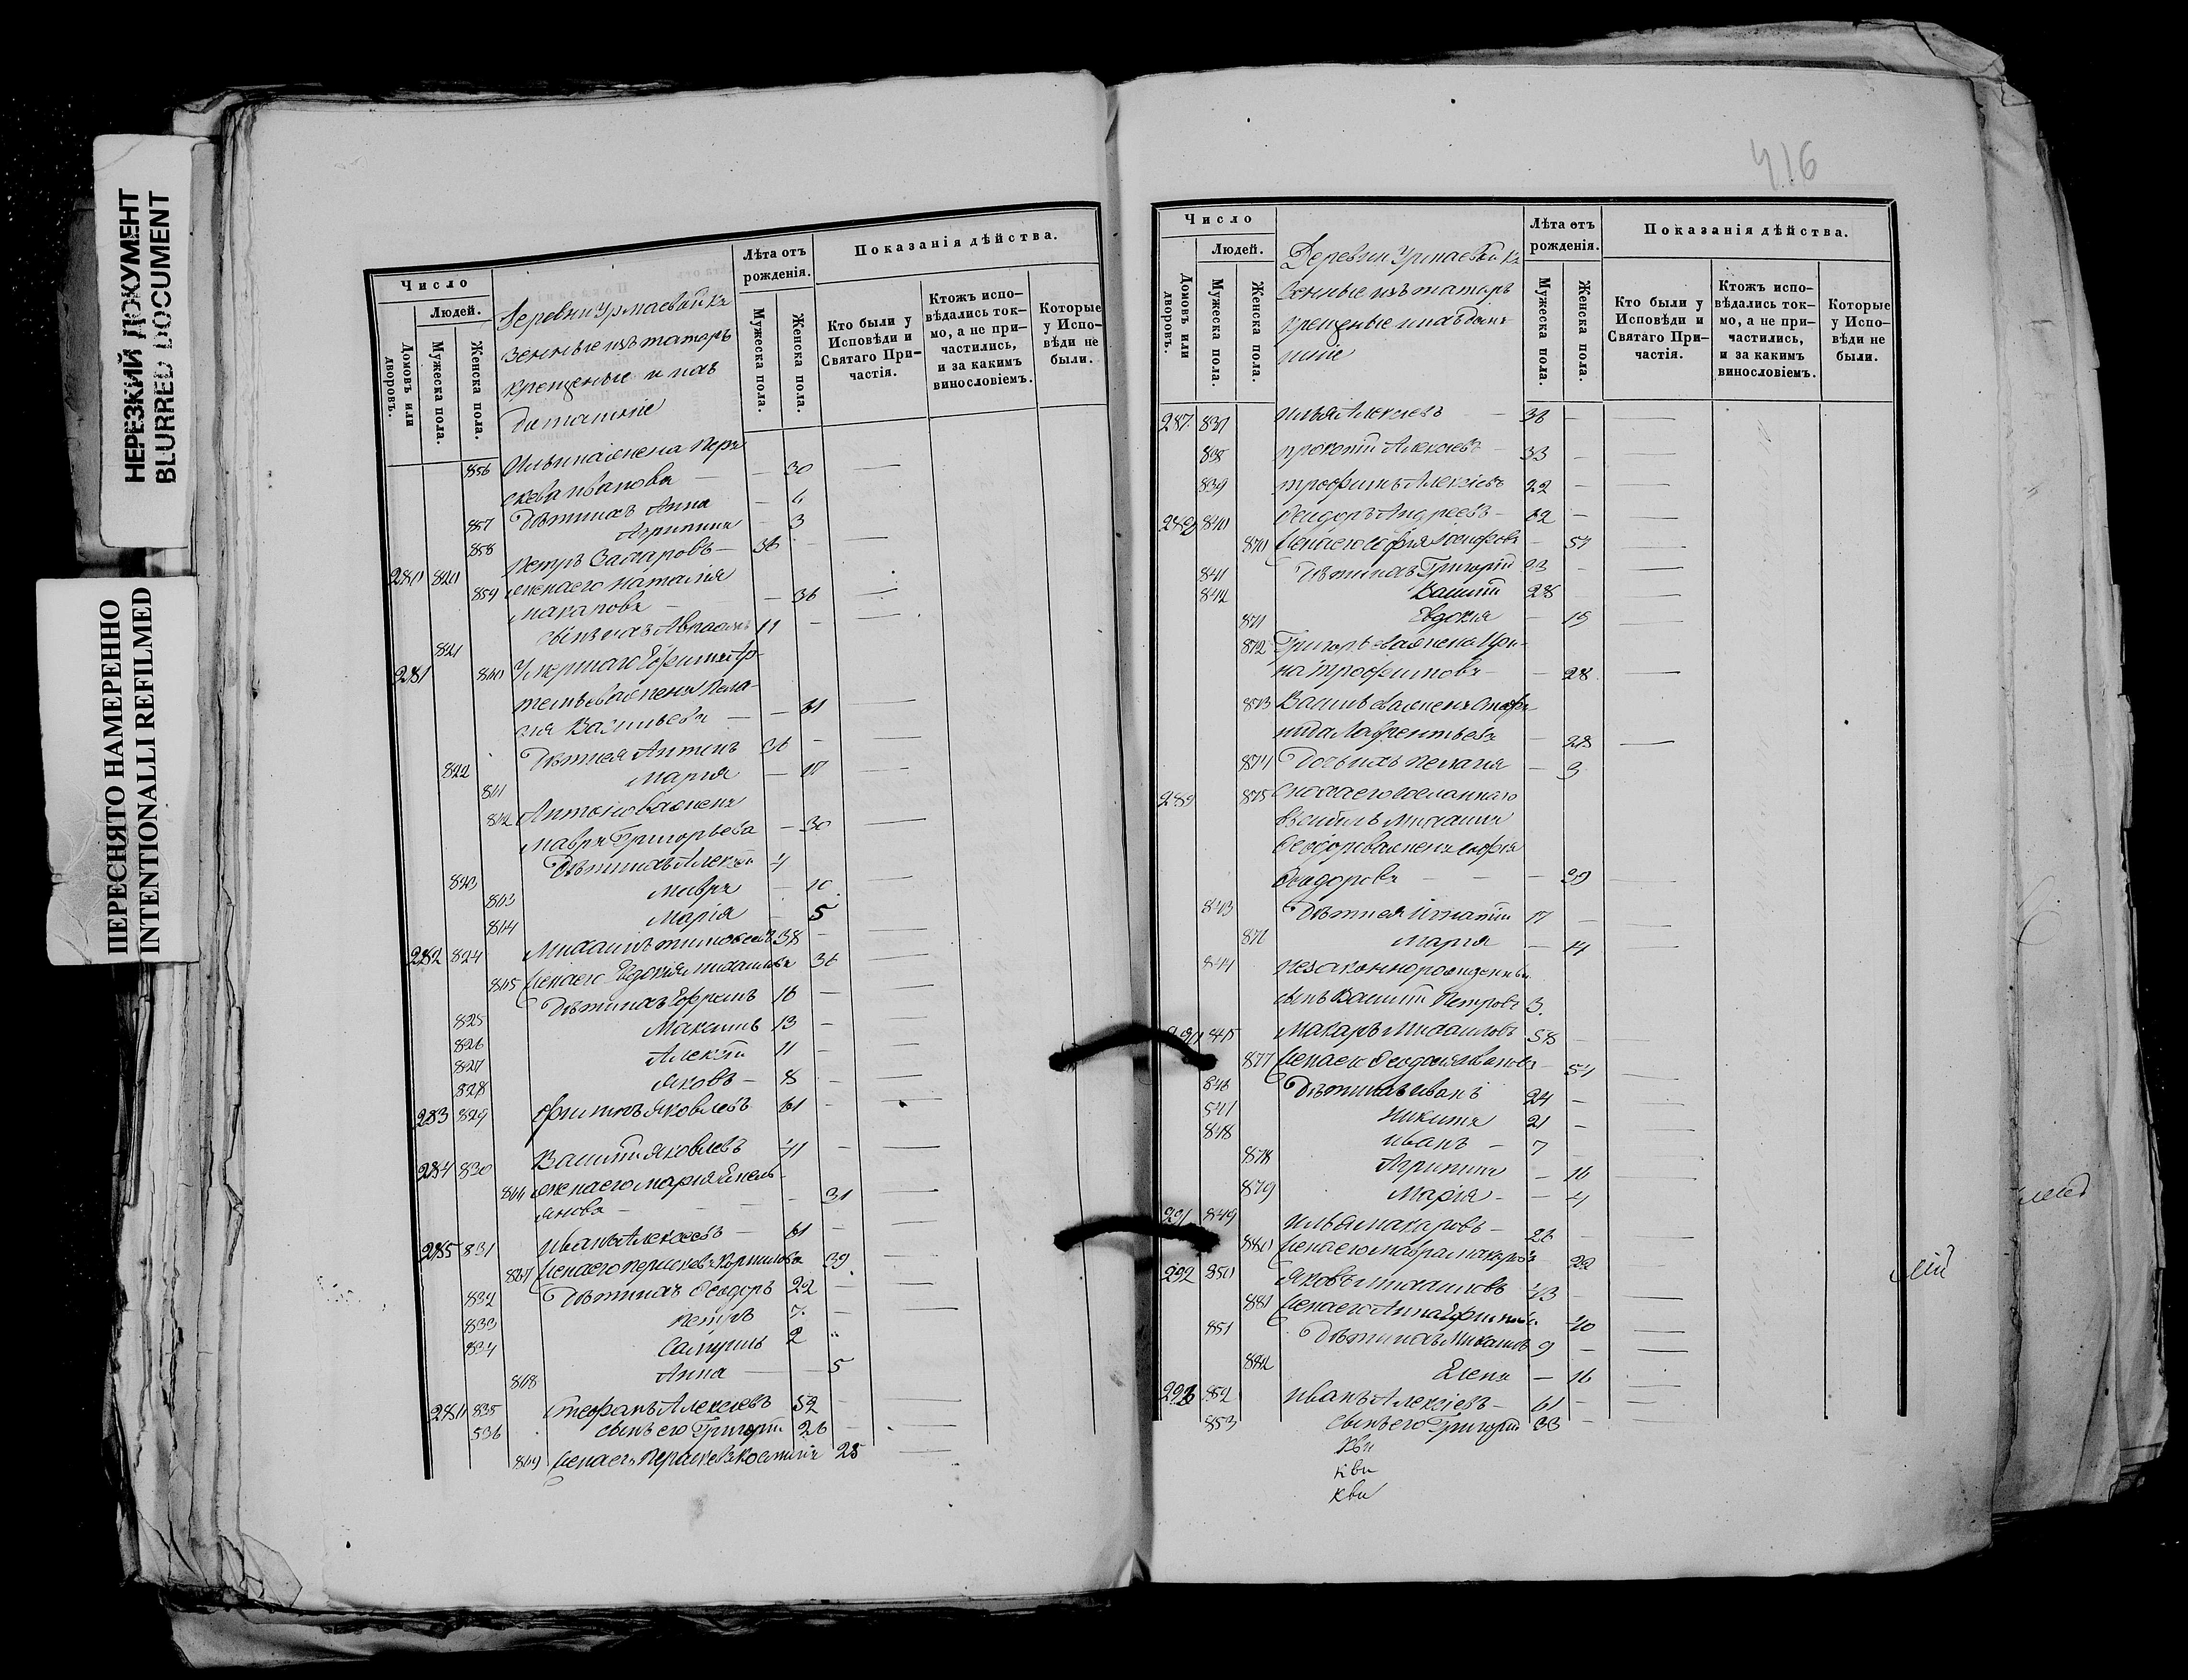 НЕРЕЗКИЙ ДОКУМЕНТ
BLURRED DOCUMENT
ПЕРЕСНЯТО НАМЕРЕННО
INTENTIONALLI REFILMED
Число
Людей.
Домовъ или дворовъ.
Мужеска пола.
Женска пола.
Деревни Урмаевой ка
зенные изъ татаръ
крещеные и изъ
Лѣта отъ рожденія.
Мужеска пола.
Женска пола.
Показанія дѣйства.
Кто были у Исповѣди и Святаго При-
частія.
Ктожъ испо-
вѣдались ток-
мо, а не при-
частились,
и за какимъ
винословіемъ.
Которые
у Испо-
вѣди не
были.
856 Ильина жена Пера
скева Иванова — 30
857 Дѣти ихъ Анна — 6
858 Агрипина — 3
280 820 Петръ Захаровъ — 36
859 жена его Наталія
Макарова — 36
821 сынъ ихъ 11
281 860 Умершаго Ефима Ар-
темьева жена Пела-
гия Васильева — 61
822 Дѣти ея Антонъ 36
861 Мария — 17
862 Антонова жена
Мавра Григорьева — 30
823 Дѣти ихъ Алексѣй 4
863 Мавра — 10
864 Марія — 5
282 824 Михаилъ Тимофеевъ 38
865 Жена его Евдокия Михайлова 36
825 Дѣти ихъ Ефремъ 16
826 Максимъ 13
827 Алексѣй 11
828 Яковъ — 8
283 829 Яковлевъ 61
284 830 Василий Яковлевъ 41
866 жена его Мария Емель-
янова — 31
285 831 Иванъ Алексѣевъ — 61
867 Жена его Перискева Корнилова 39
832 Дѣти ихъ Феодоръ 22
833 Петръ 7
834 Самуилъ 2
868 Анна — 5
286 835 Стефанъ Алексѣевъ 52
536 сынъ его Григорий 26
869 Жена его Параскева 25
416
Число
Людей.
Домовъ или дворовъ.
Мужеска пола.
Женска пола.
Деревни Урмаевой ка
зенные изъ татаръ
крещеные
Лѣта отъ рожденія.
Мужеска пола.
Женска пола.
Показанія дѣйства.
Кто были у
Исповѣди и
Святаго При-
частія.
Ктожъ испо-
вѣдались ток-
мо, а не при-
частились,
и за какимъ
винословіемъ.
Которые
у Испо-
вѣди не
были.
287 837 Илья Алексѣевъ — 36
838 Прокопій Алексѣевъ 33
839 Трофимъ Алексѣевъ 22
288 840 Феодоръ Андреевъ — 62
870 Жена его Софія — 57
841 Дѣти ихъ Григорій 33
842 Василій 28
871 Евдокия — 15
872 Григорьева жена Ири-
на Трофимова — 28
873 Васильева жена
Лаврентьева — 28
874 Дочь ихъ Пелагия — 3
289 875 сосланнаго
Михаила
Феодорова жена Софія
Феодорова — 39
843 Дѣти ея Игнатій 17
876 Мария — 14
844 Незаконнорожденный
сынъ Василій Петровъ 3.
290 845 Макаръ Михайловъ 58
877 Жена его Феодосия Иванова 54
846 Дѣти ихъ Иванъ 24
541 Никита 21
848 Иванъ — 7
878 Агрипина — 16
879 Марія — 4
291 849 Илья Макаровъ — 26
880 Жена его Мавра Макарова 22
292 850 Яковъ Михайловъ 43
881 Жена его Анна 40
851 Дѣти ихъ Михаилъ 9
882 Елена — 16
293 852 Иванъ Алексѣевъ — 61
853 сынъ его Григорій 33